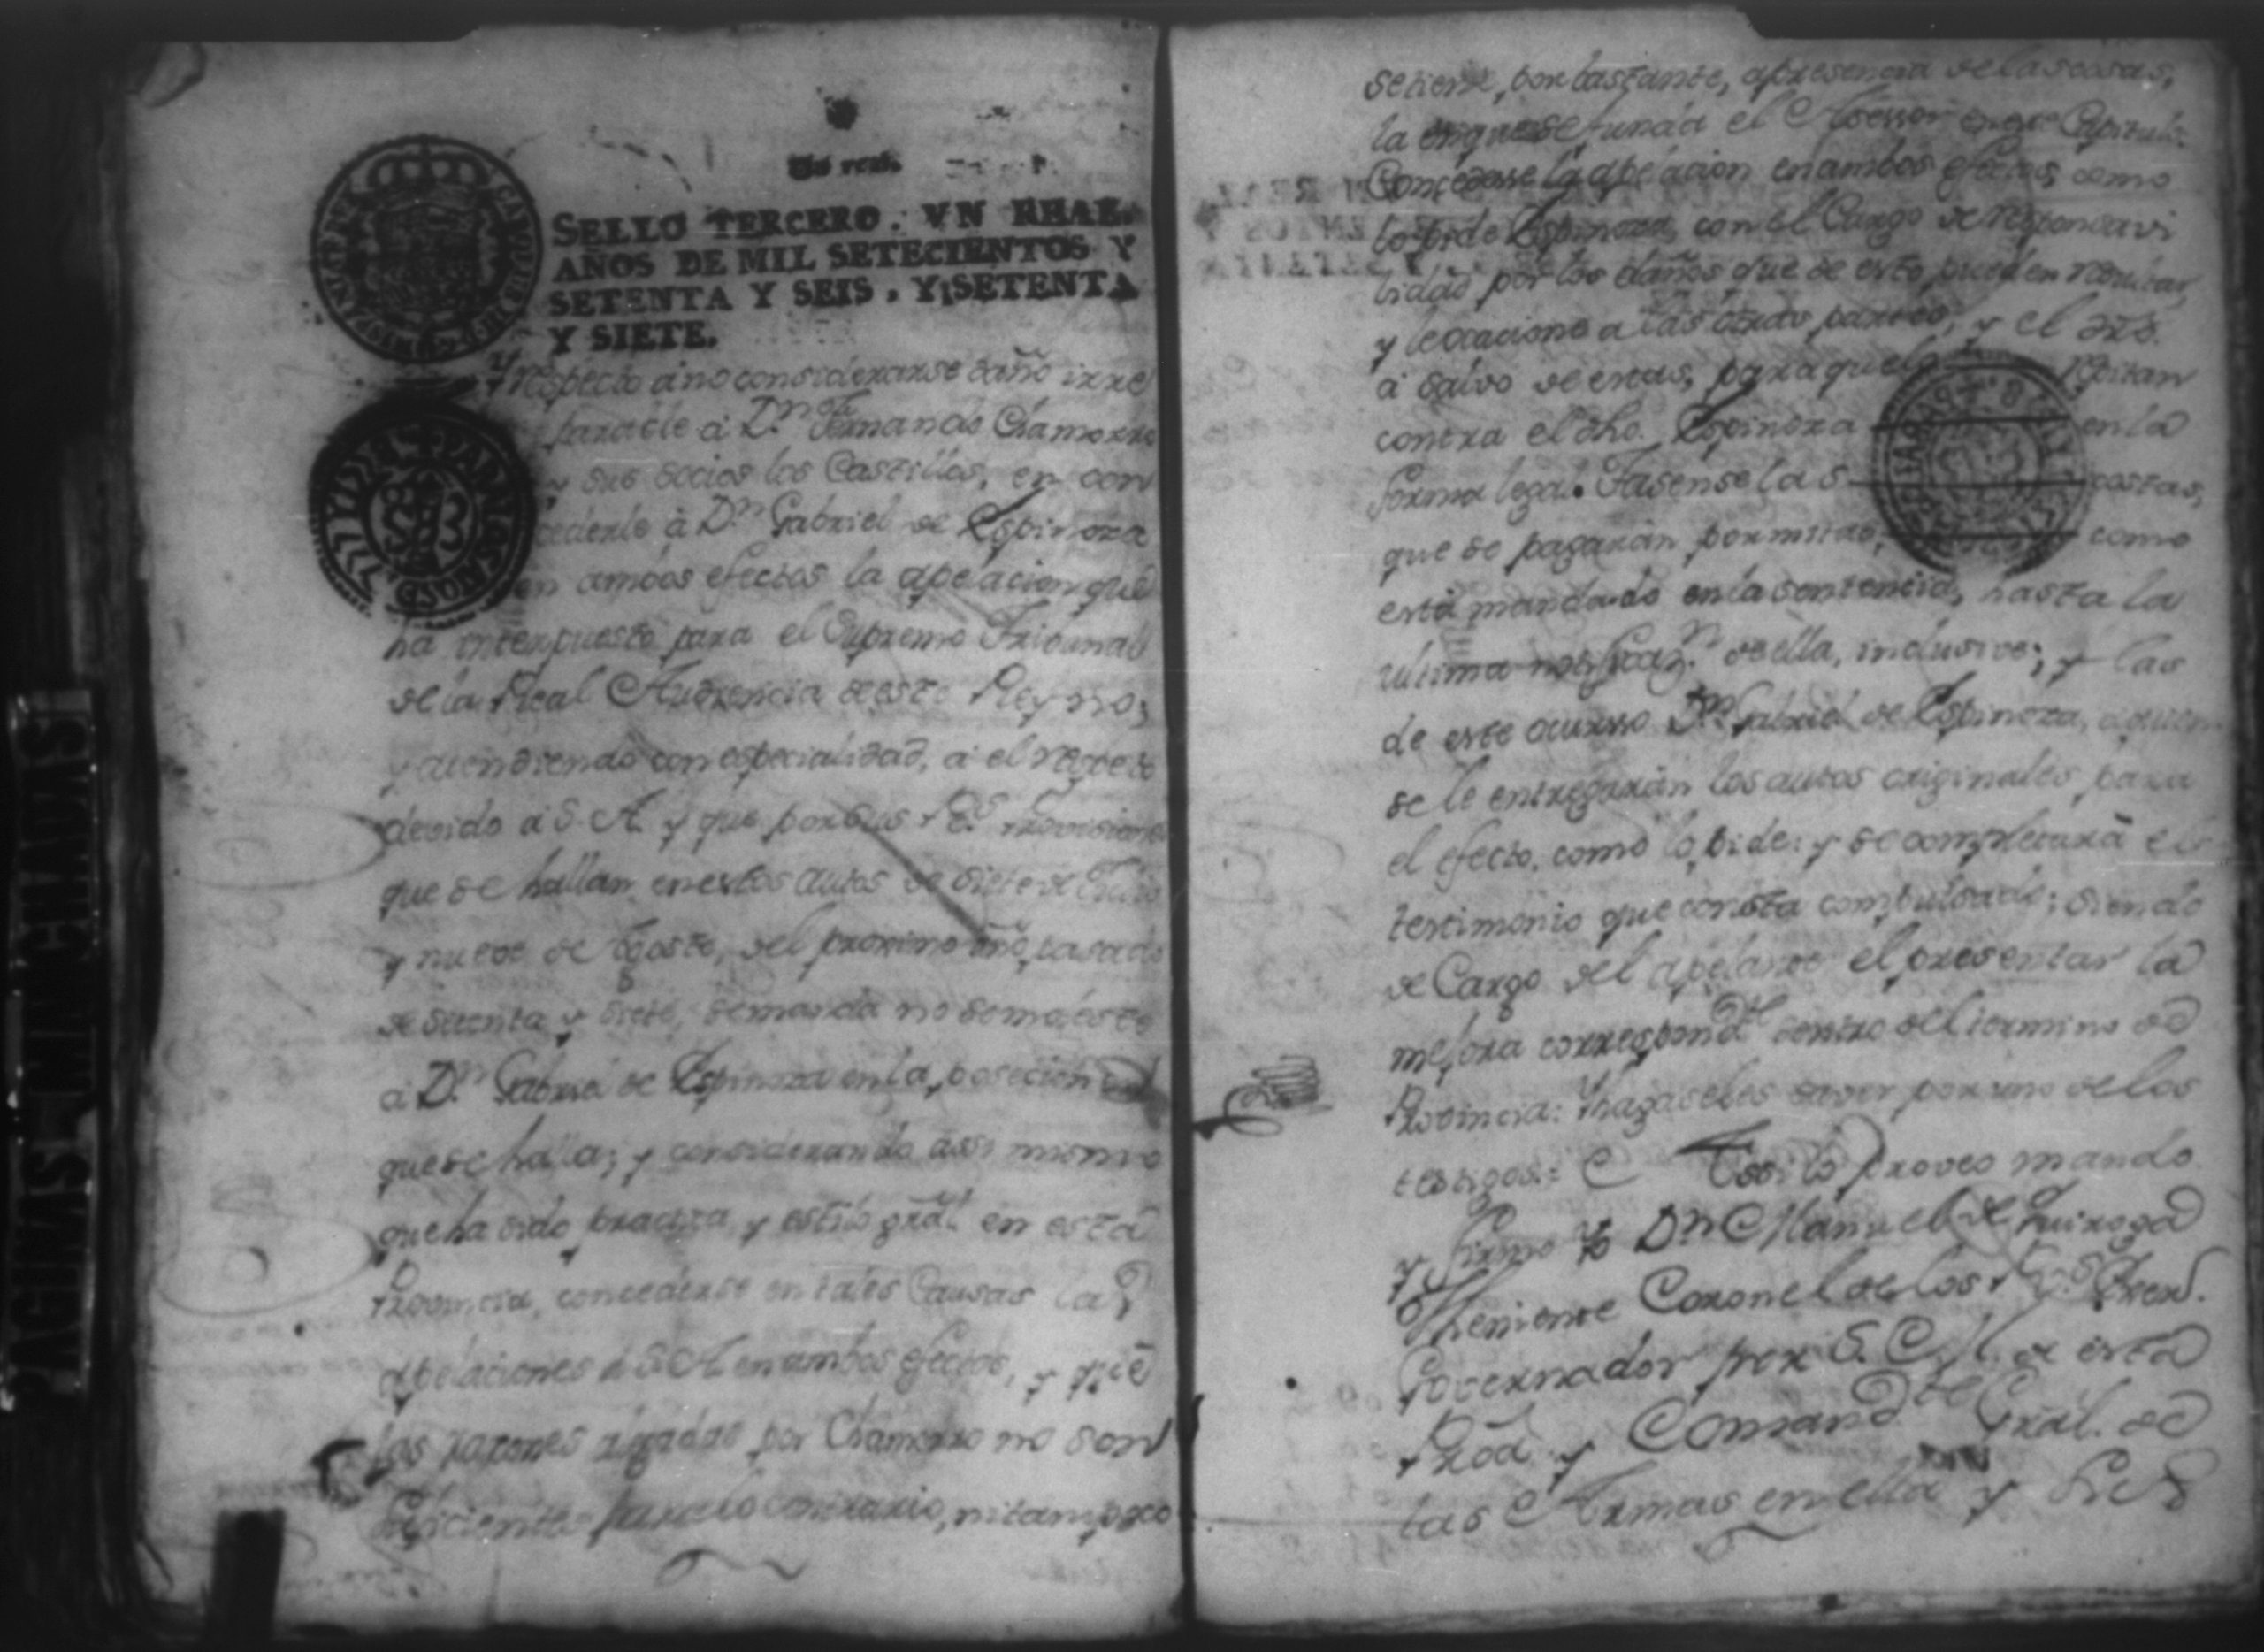 Un real.
SELLO TERCERO. VN REAL.
AÑOS DE MIL SETECIENTOS Y
SETENTA Y SEIS, Y SETENTA
Y SIETE.
Y respecto à no considerarse daño irre
parable à D.n Fernando Chamorro
y sus socios los Castillos, en con
cederle à D.n Gabriel de Espinoza
en ambos efectos la apelacion que
ha interpuesto para el Supremo Tribunal
de la Real Audiencia de este Reyno;
y atendiendo con especialidad, à el respeto
devido à S. A. y que por sus R.s Provisiones
que se hallan en estos autos de siete de
y nueve de Agosto, del proximo año pasado
de setenta y siete, se manda no se moleste
à D.n Gabriel de Espinoza en la posecion en
que se halla; y considerando assi mismo
que ha sido practica, y estilo gral en esta
Provincia, concederse en tales Causas las
apelaciones à S. A. en ambos efectos, y que
las razones alegadas por Chamorro no son
suficientes para lo contrario, ni tampoco
se tiene, por bastante, a presencia de las cosas,
la en que se funda el Asessor
Concedese la apelacion en ambos efectos, como
lo pide Espinoza, con el Cargo de responsavi
lidad por los daños que de esto, pueden resultar,
y se ocacione a las otras partes; y el dro.
à salvo de estas, para que lo repitan
contra el dho. Espinoza en la
forma legal. Tasense las costas,
que se pagaràn por mitad, como
està mandado en la sentencia, hasta la
ultima notificaz.n de ella, inclusive; y las
de este ocurso D.n Gabriel de Espinoza, a quien
se le entregaràn los autos originales, para
el efecto, como lo pide: y se completarà el
testimonio que consta compulsado; siendo
de Cargo del apelante el presentar la
mejora correspond.te dentro del termino de
Provincia: Y hagaseles saver por uno de los
testigos.= Assi lo proveo mando
y firmo Yo D.n Manuel de Quiroga
Theniente Coronel de los R.s Exerc.
Governador por S. M. de esta
Prov.a y Comand.te Gral. de
las Armas en ella y